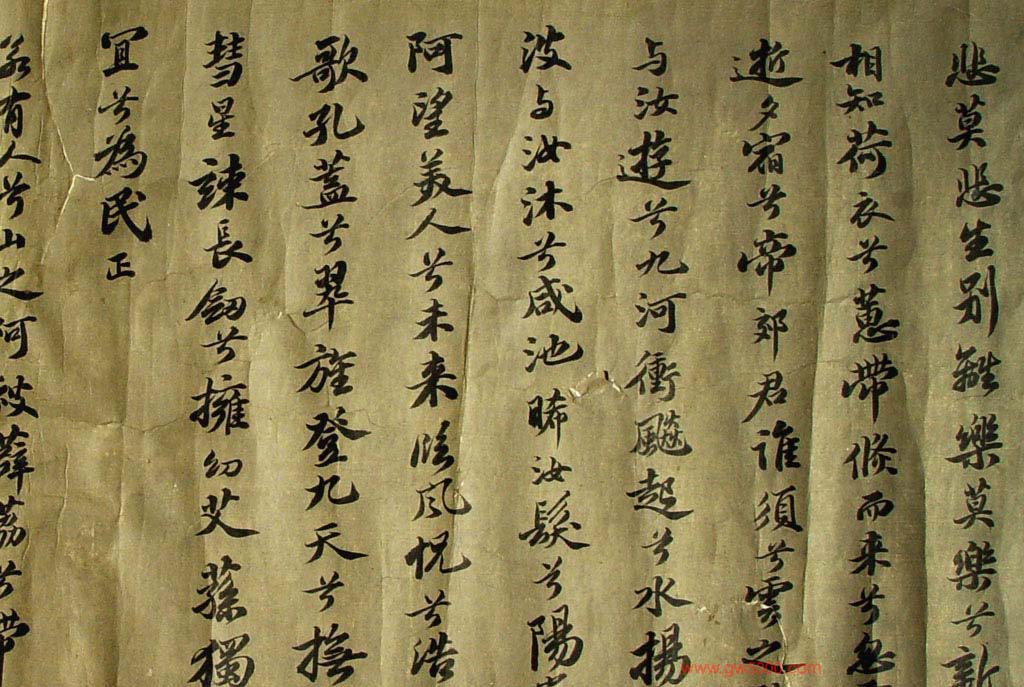 悲莫悲生别離樂莫樂兮新
相知荷衣兮蕙带倏而来兮忽
逝夕宿兮帝郊君谁须兮雲之
与汝遊兮九河衝飈起兮水揚
波与汝沐兮咸池晞汝髮兮陽
阿望美人兮未来临风怳兮浩
歌孔蓋兮翠旌登九天兮撫
彗星竦長劔兮擁幼艾蓀獨
宜兮為民正
若有人兮山之阿被薜荔兮帶